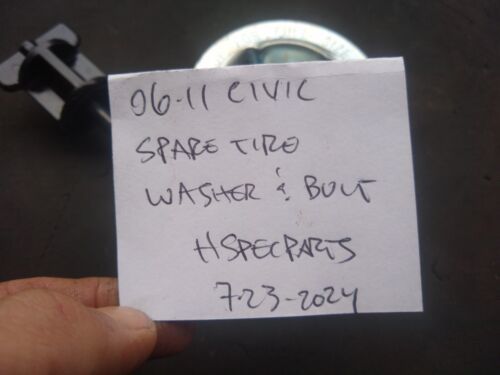 06-11 CIVIC
SPARE TIRE
WASHER & BOLT
HSPECPARTS
7-23-2024